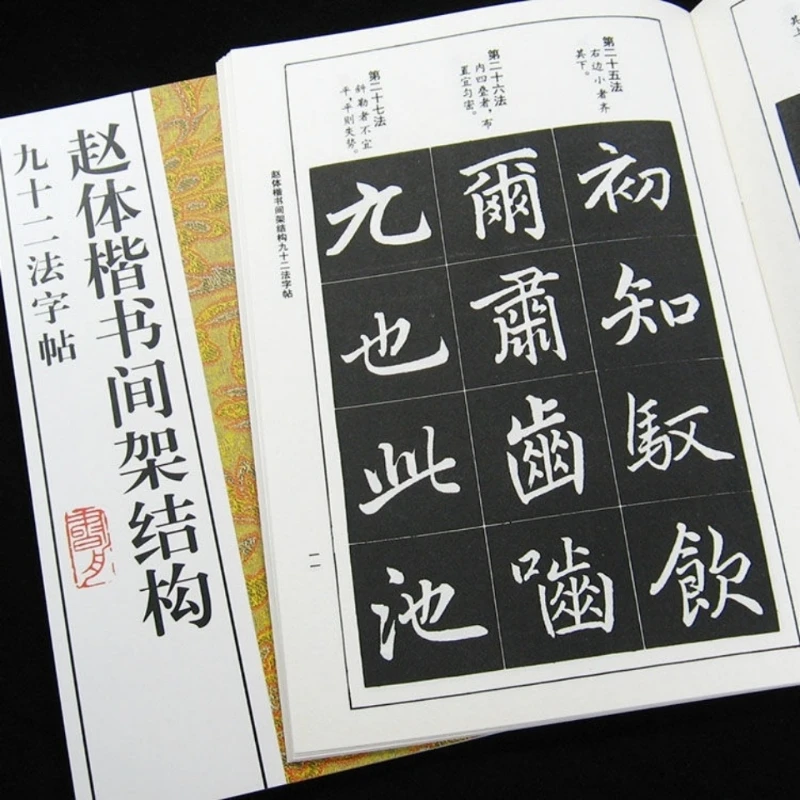 赵体楷书间架结构
九十二法字帖
第二十五法
右边小者齐
其下。
第二十六法
内四叠者，布
置宜匀密。
第二十七法
斜勒者不宜
平，平则失势。
初知馭飲
爾肅齒嚙
九也此池
赵体楷书间架结构九十二法字帖
一一